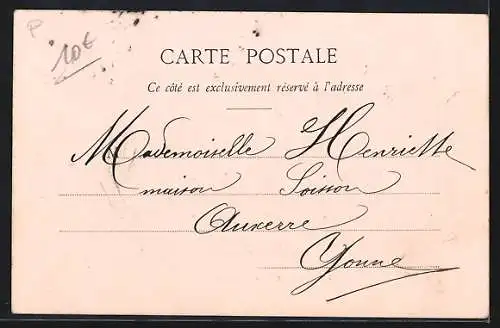 P
10€
CARTE POSTALE
Ce côté est exclusivement réservé à l'adresse
Mademoiselle Henriette
maison Soisson
Auxerre
Yonne